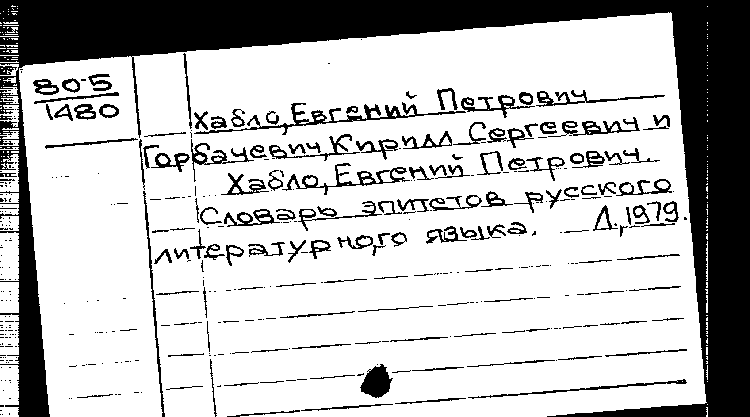 80-5
1480
Хабло, Евгений Петрович
Горбачевич, Кирилл Сергеевич и
Хабло, Евгений Петрович.
Словарь эпитетов русского
литературного языка. Л., 1979.